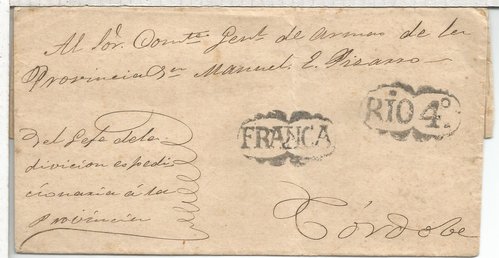 Al Sor. Comte. Genl. de Armas de la
Provincia Dn Manuel E. Pisarro
FRANCA
RIO 4º.
Del Gefe de la
division espedi-
cionaria á la
Provincia
Córdoba